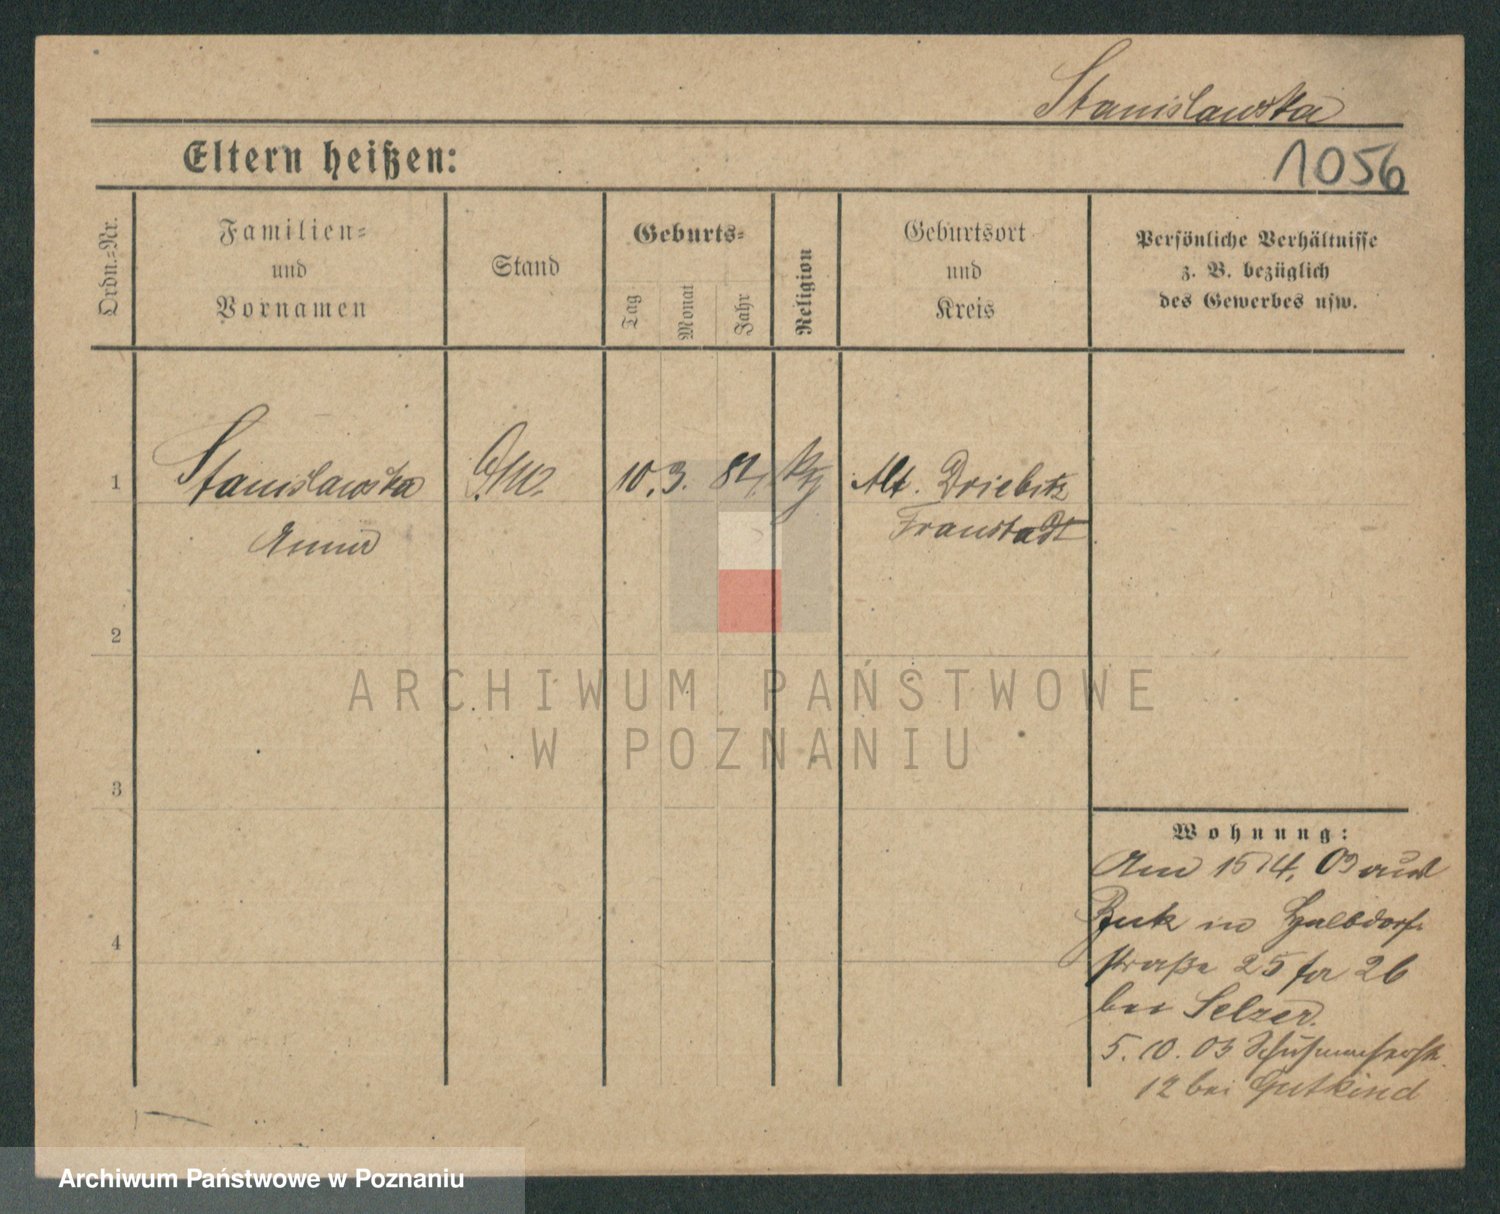 Stanislawska
Eltern heißen:
1056
Ordn.-Nr.
Familien-
und
Vornamen
Stand
Geburts-
Tag
Monat
Jahr
Religion
Geburtsort
und
Kreis
Persönliche Verhältnisse
z. B. bezüglich
des Gewerbes usw.
1
Stanislawska
10. 3. 84
Alt. Driebitz
Anna
Fraustadt
2
ARCHIWUM PAŃSTWOWE
W POZNANIU
3
Wohnung:
Am 15/4. 03 aus
Buk in Halbdorf-
straße 25 26
4
bei Selzer.
5. 10. 03 Schuhmacherstr.
12 bei Gutkind
Archiwum Państwowe w Poznaniu